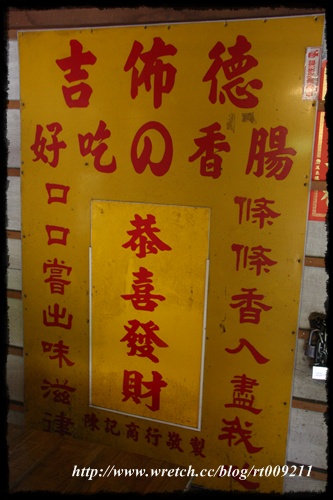 吉佈德
好吃の香腸
條條香入盡我
口口嘗出味滋
恭喜發財
陳記商行敬製
http://www.wretch.cc/blog/rt009211